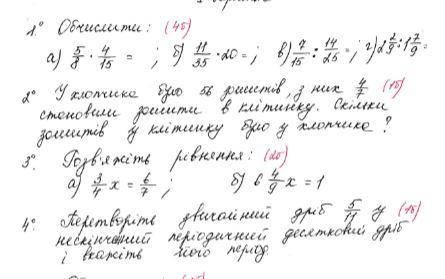 1° Обчислити: (4б)
а) 5/8 · 4/15 = ; б) 11/35 · 20 = ; в) 7/15 : 14/25 = ; г) 2 2/9 : 1 7/9 =
2° У хлопчика було зошитів, з них 4/7 (1б)
становили зошити в клітинку. Скільки
зошитів у клітинку було у хлопчика?
3° Розв'яжіть рівняння: (2б)
а) 3/4 x = 6/7 ; б) 4/9 x = 1
4° Перетворіть звичайний дріб 5/11 у (1б)
нескінченний періодичний десятковий дріб
і вкажіть його період.